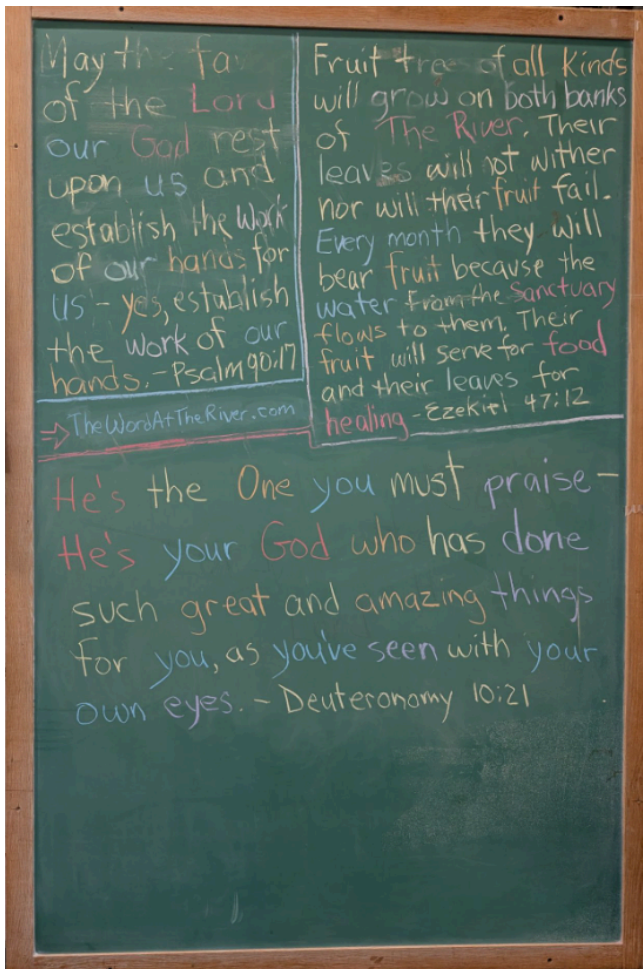 May the fa
of the Lord
our God rest
upon us and
establish the work
of our hands for
us - yes, establish
the work of our
hands. - Psalm 90:17
TheWordAtTheRiver.com
Fruit tree of all kinds
will grow on both banks
of The River. Their
leaves will not wither
nor will their fruit fail.
Every month they will
bear fruit because the
water from the Sanctuary
flows to them. Their
fruit will serve for food
and their leaves for
healing - Ezekiel 47:12
He's the One you must praise -
He's your God who has done
such great and amazing things
for you, as you've seen with your
own eyes. - Deuteronomy 10:21